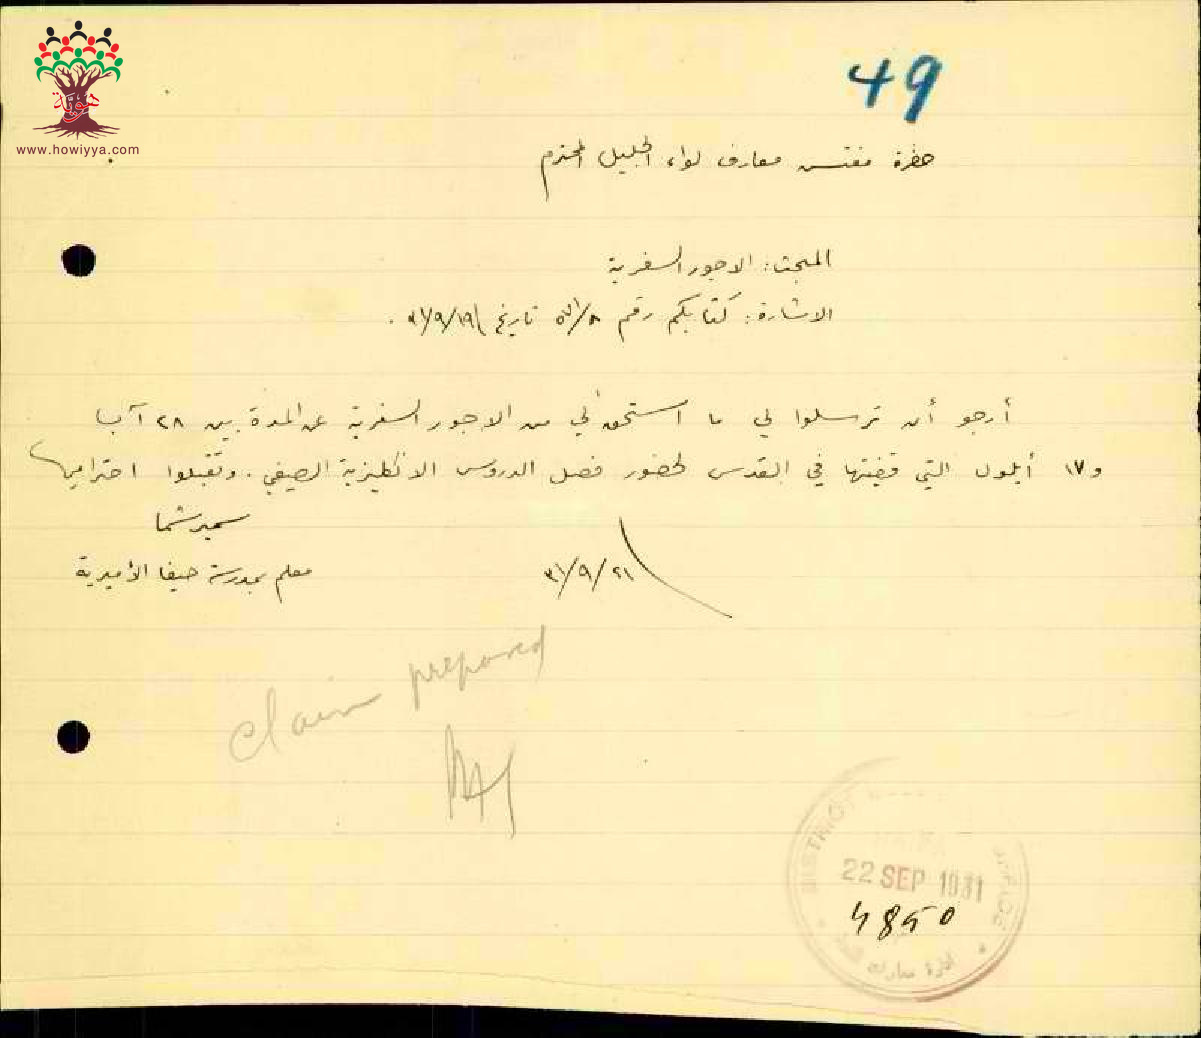 هوية
www.howiyya.com
49
حضرة مفتش معارف لواء الجليل المحترم
المبحث: الاجور السفرية
الاشارة: كتابكم رقم ٥٧١/٨ تاريخ ٣١/٩/١٩ .
أرجو أن ترسلوا لي ما استحق لي من الاجور السفرية عن المدة بين ٢٨ آب
و١٧ أيلول التي قضيتها في القدس لحضور فصل الدروس الانكليزية الصيفي. وتقبلوا احترامي
سمير شما
معلم بمدرسة حيفا الأميرية
٣١/٩/٢١
claim prepared
DISTRICT
HAIFA
22 SEP 1931
4850
OFFICE
ادارة معارف